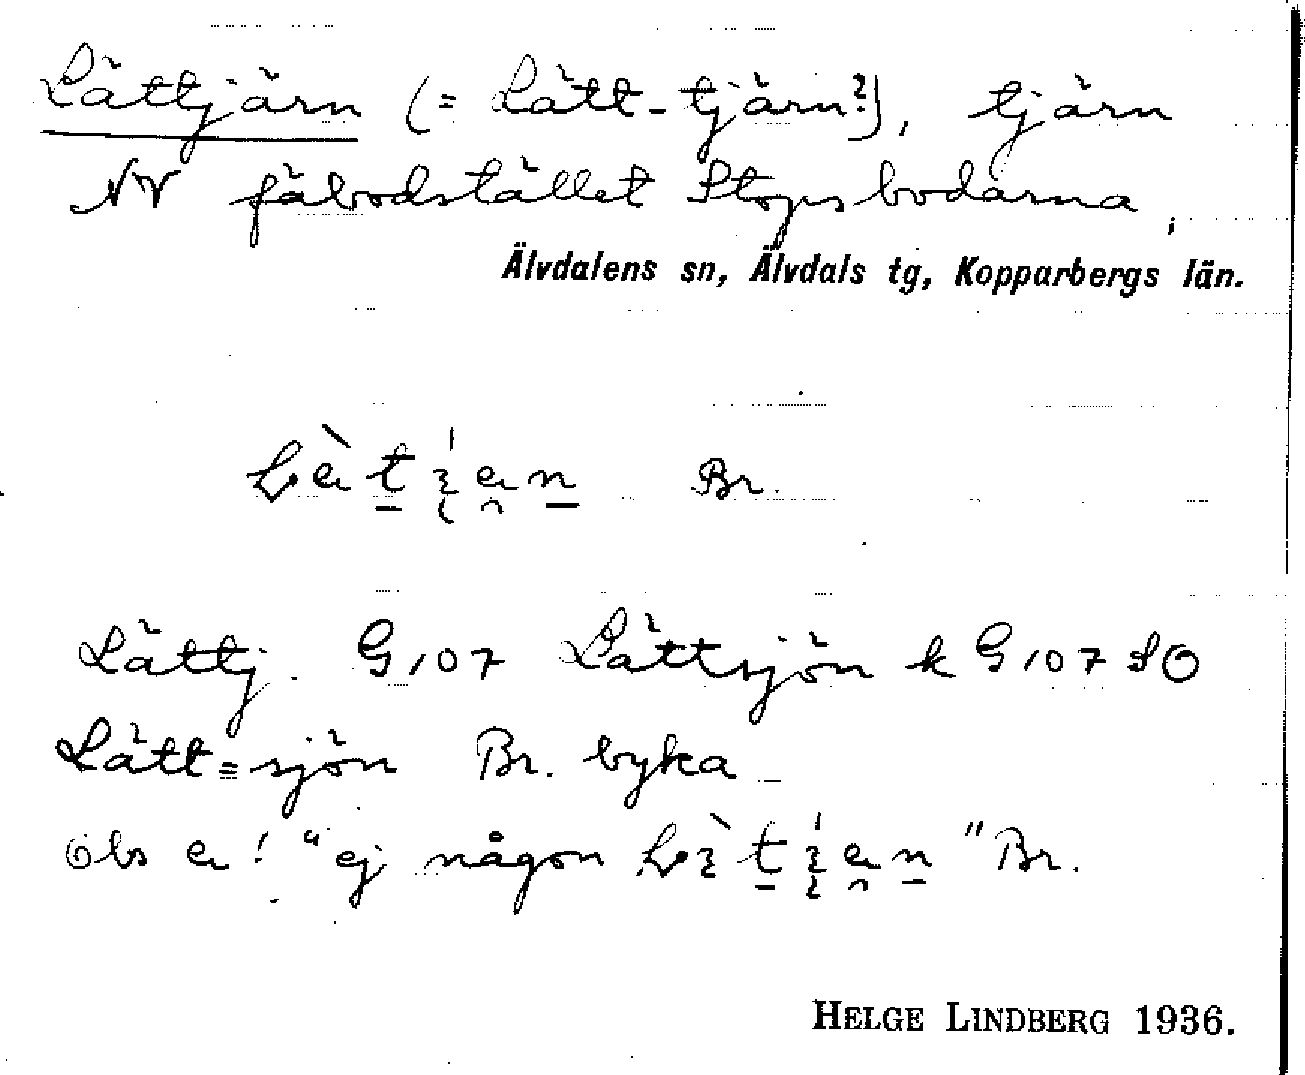 Lättjärn (= Lätt-tjärn?), tjärn
NV fäbodstället Stopsbodarna,
Älvdalens sn, Älvdals tg, Kopparbergs län.
Br.
Lättj. G107 Lättsjön k G107 SO
Lätt=sjön Br. byka
obs a! "ej någon " Br.
HELGE LINDBERG 1936.